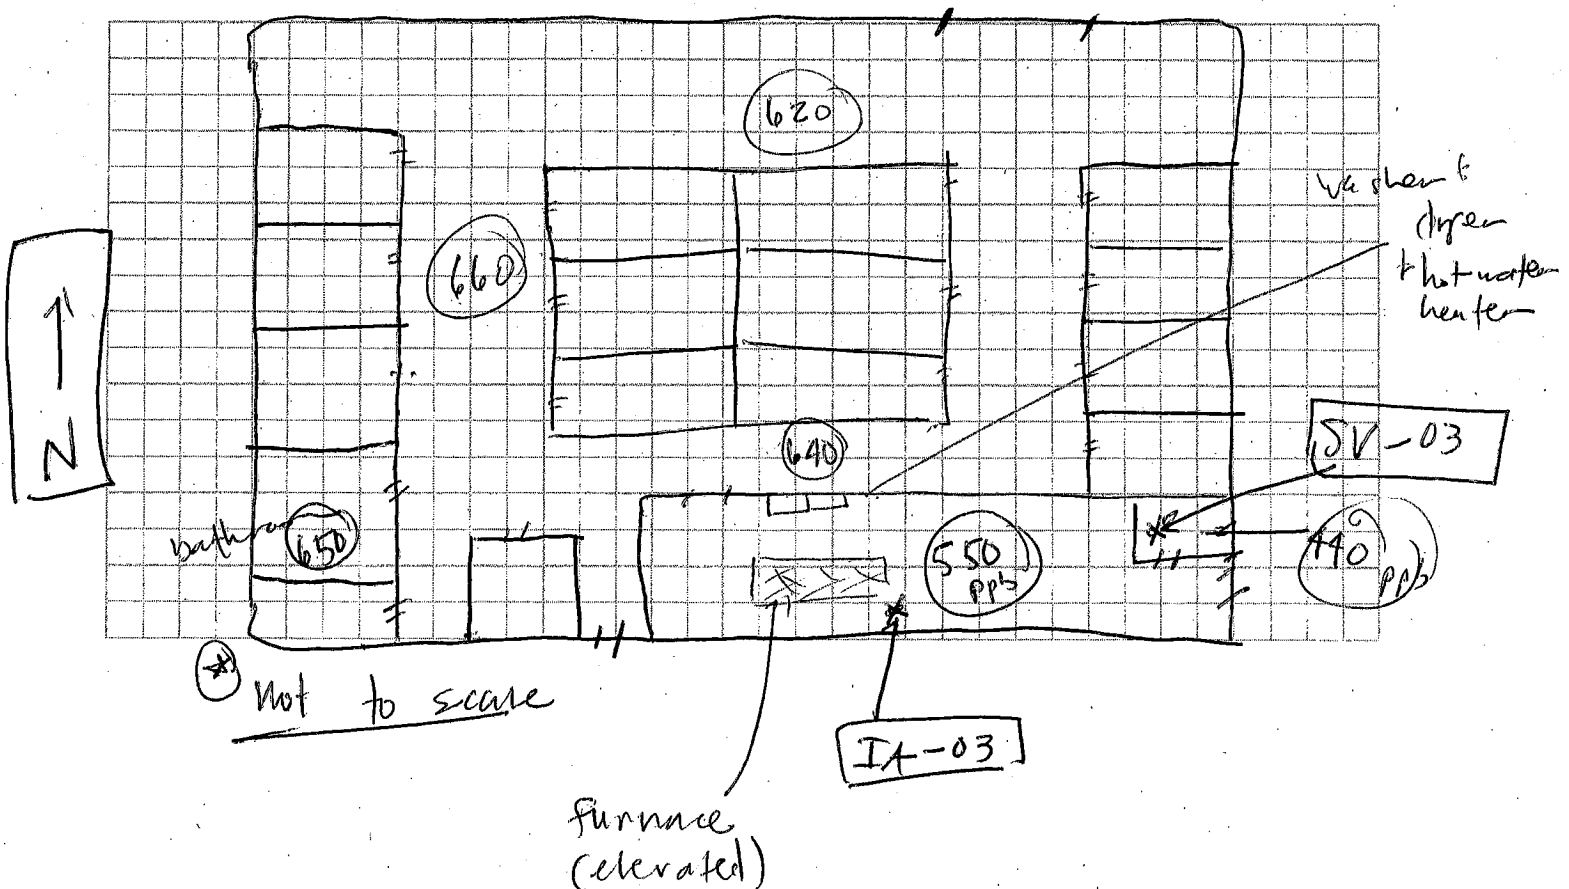 620
washer &
dryer
& hot water
heater
660
N
SV-03
640
bathroom
650
550
ppb
440
ppb
* Not to scale
IA-03
furnace
(elevated)